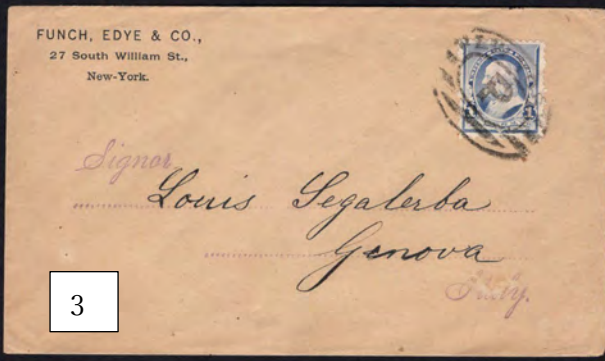 FUNCH, EDYE & CO.,
27 South William St.,
New-York.
Signor
Louis Segalerba
Genova
Italy.
3